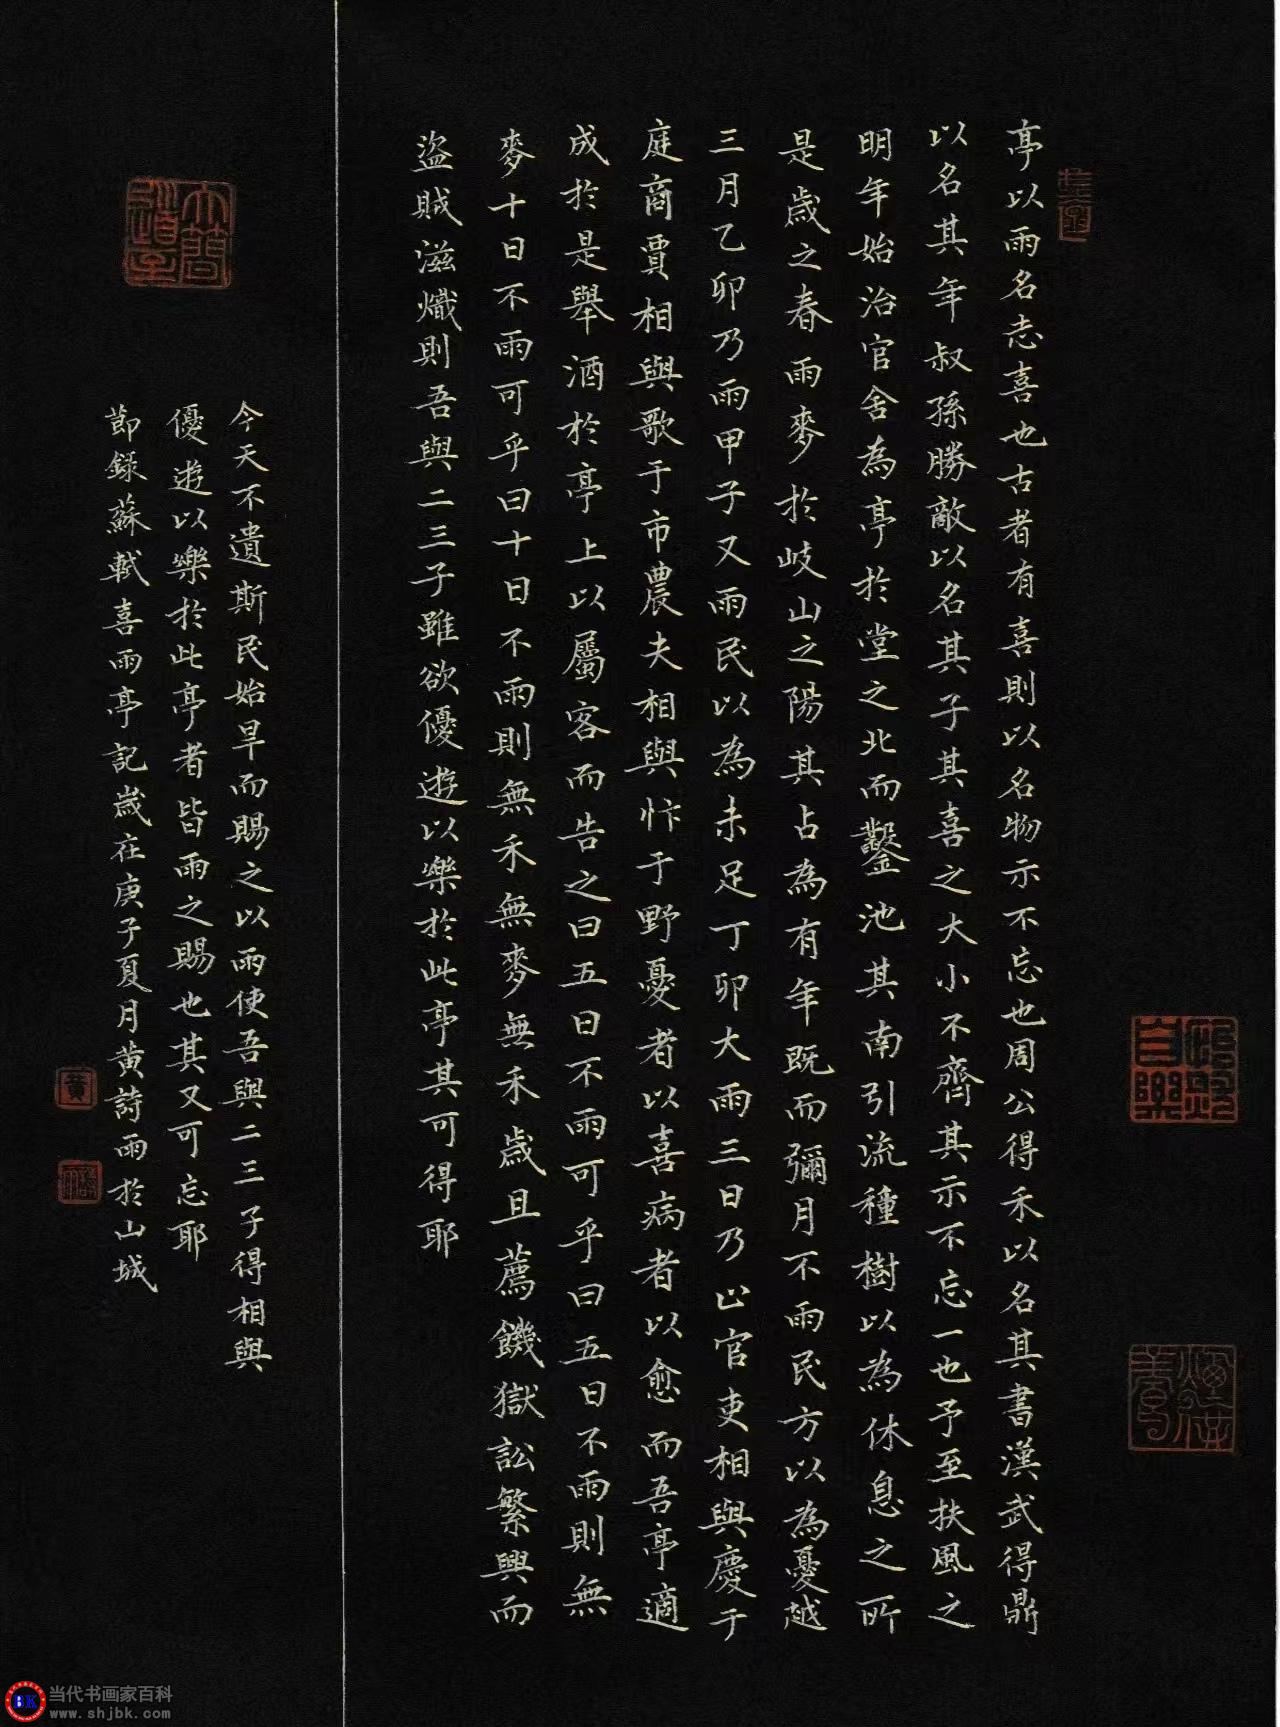 亭以雨名志喜也古者有喜則以名物示不忘也周公得禾以名其書漢武得鼎
以名其年叔孫勝敵以名其子其喜之大小不齊其示不忘一也予至扶風之
明年始治官舍為亭於堂之北而鑿池其南引流種樹以為休息之所
是歲之春雨麥於岐山之陽其占為有年既而彌月不雨民方以為憂越
三月乙卯乃雨甲子又雨民以為未足丁卯大雨三日乃止官吏相與慶于
庭商賈相與歌于市農夫相與忭于野憂者以喜病者以愈而吾亭適
成於是舉酒於亭上以屬客而告之曰五日不雨可乎曰五日不雨則無
麥十日不雨可乎曰十日不雨則無禾無麥無禾歲且薦饑獄訟繁興而
盜賊滋熾則吾與二三子雖欲優遊以樂於此亭其可得耶
今天不遺斯民始旱而賜之以雨使吾與二三子得相與
優遊以樂於此亭者皆雨之賜也其又可忘耶
節錄蘇軾喜雨亭記歲在庚子夏月黃詩雨於山城
大簡道至
自樂
黃
詩雨
BK
当代书画家百科
www.shjbk.com